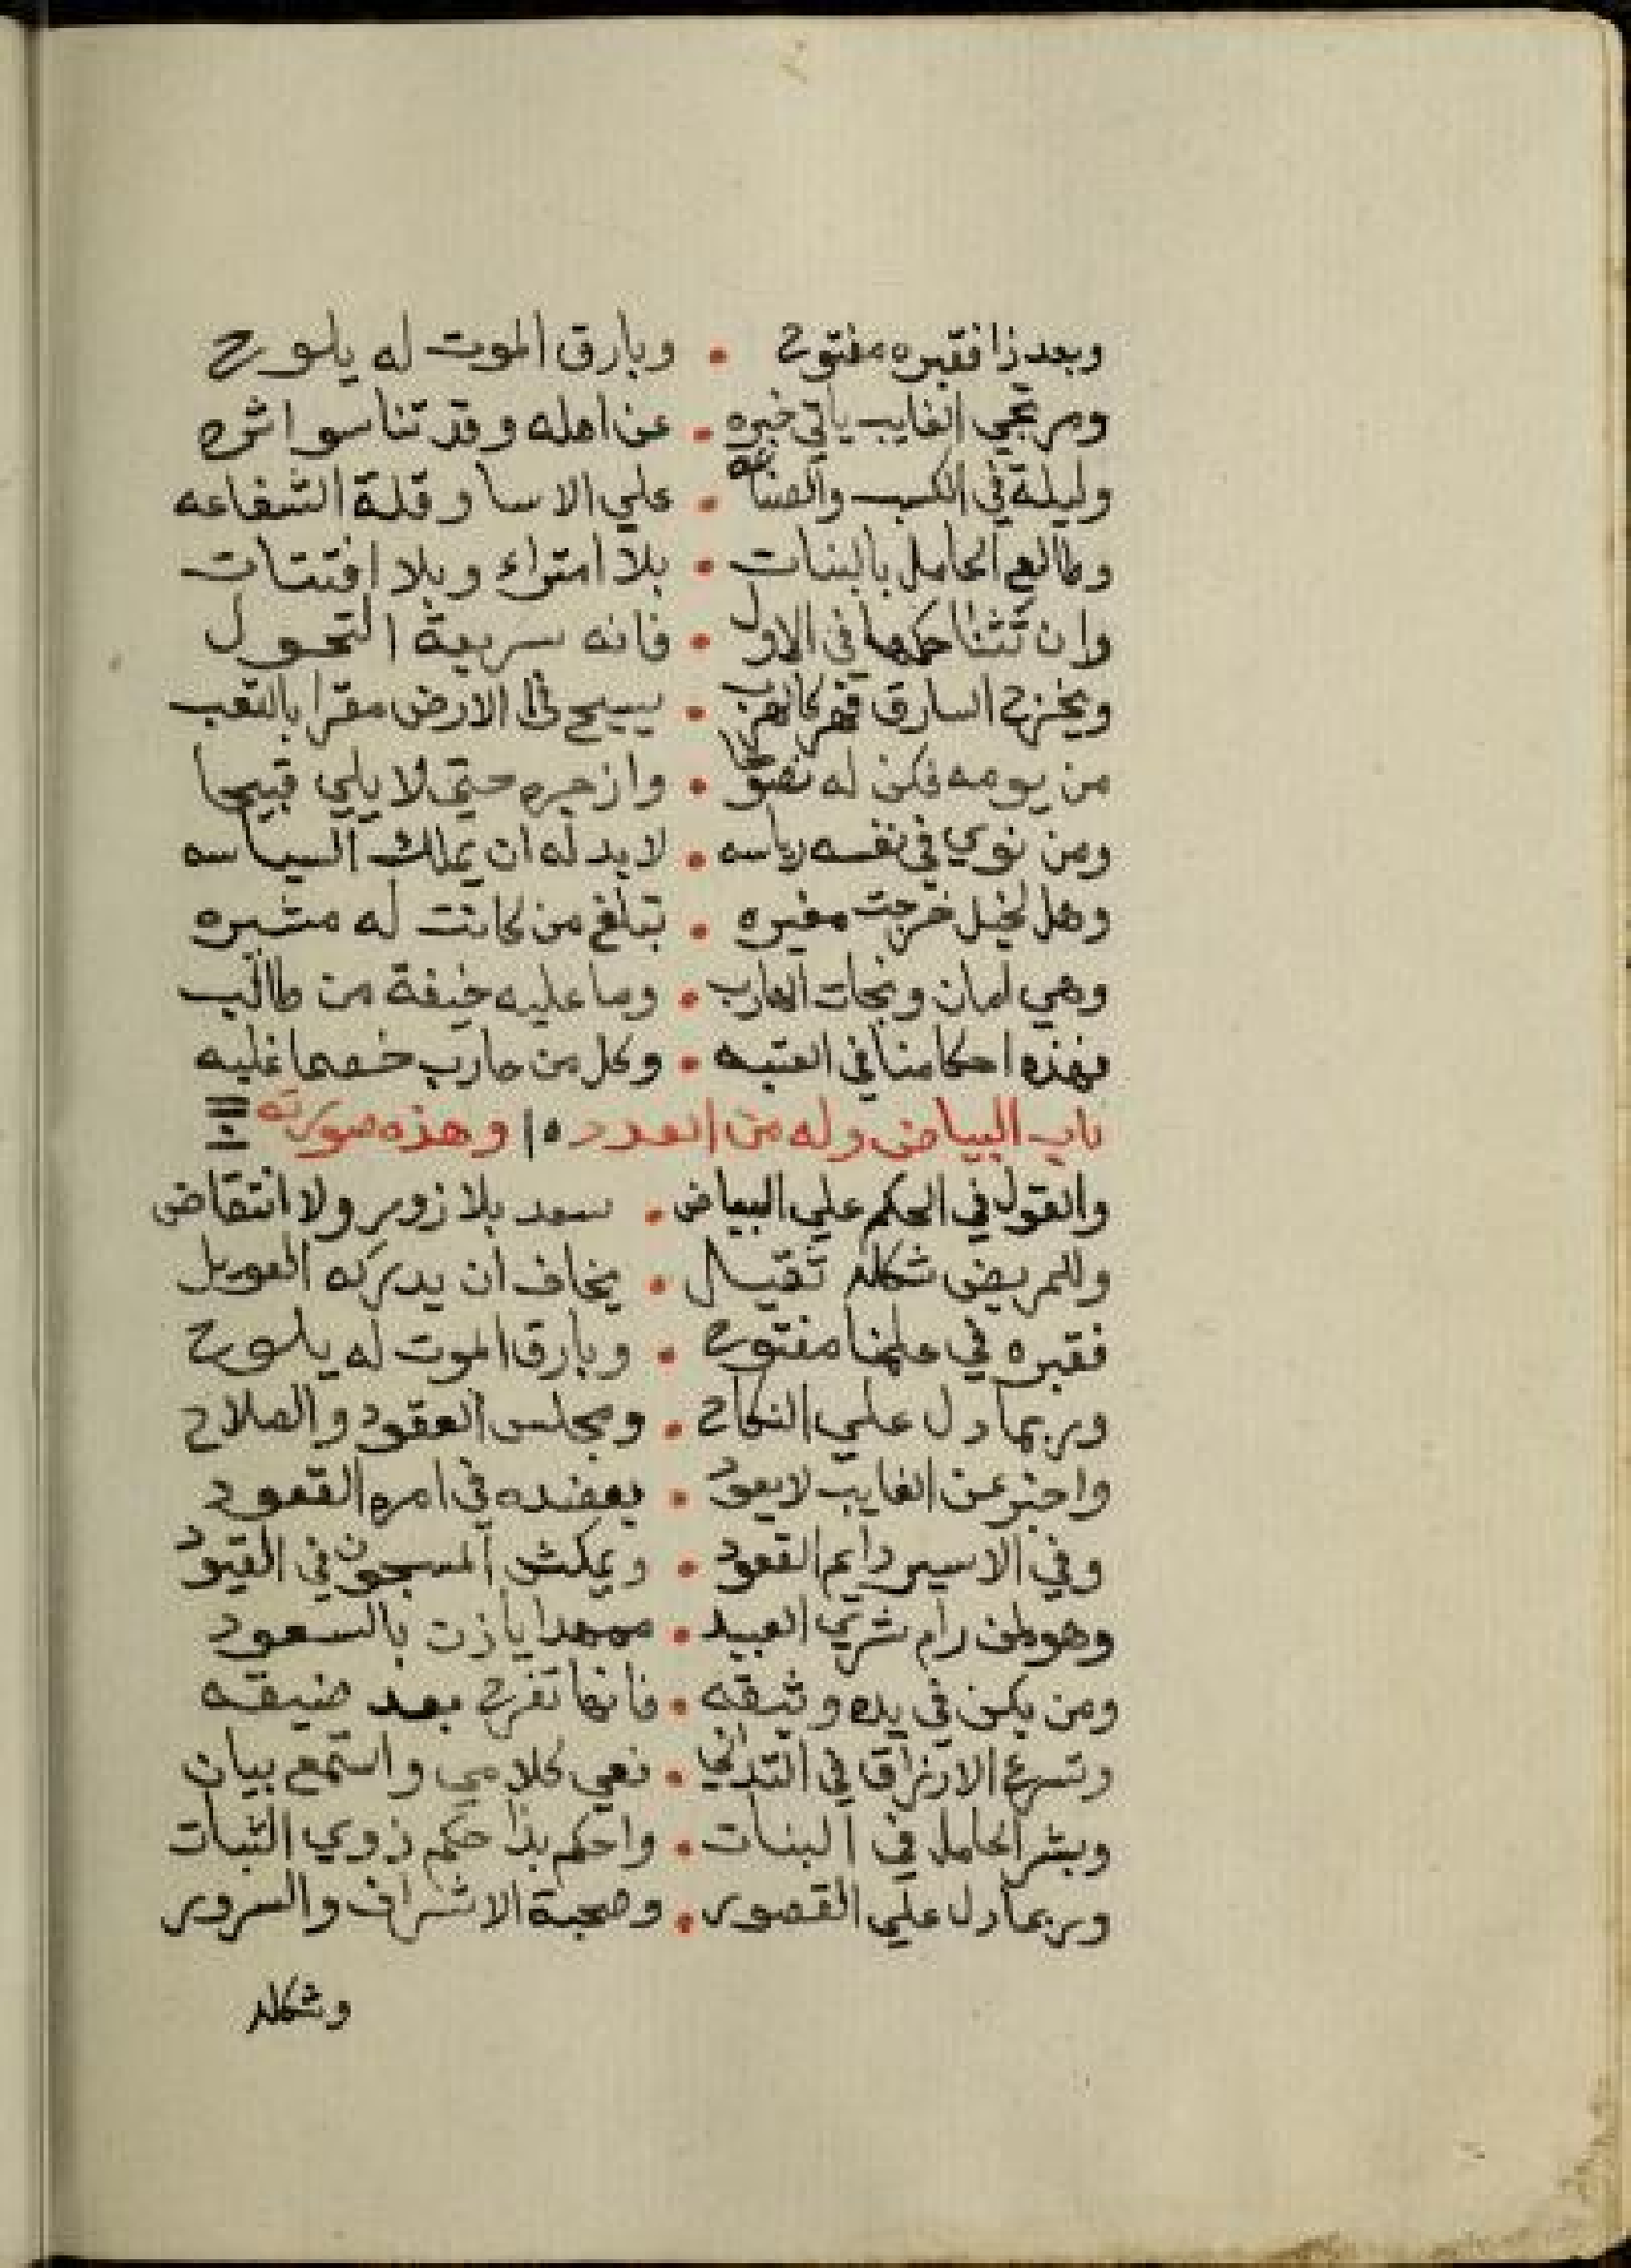 وبعد ذا فقبره مفتوح • وبارق الموت له يلوح
ومرتجي الغايب ياتي خبره • عن اهله وقد تناسوا اثره
وليلة في الكسب والصناعه • علي الاسا وقلة الشفاعه
وطالع الحامل بالبنات • بلا امتراء وبلا افتتات
وان تشا حكمها في الاول • فانه سريعة التحول
ويخرج السارق فهر كالهرب • يسيح في الارض مقرا بالتعب
من يومه فكن له نصوحا • وازجره حتي لا يلي قبيحا
ومن نوي في نفسه رياسه • لا بد له ان يملك السياسه
وهل لخيل خرجت مغيره • تبلغ من كانت له مشيره
وهي امان ونجات الهارب • وما عليه خيفة من طالب
فهذه احكامنا في العتبه • وكل من حارب خصما غلبه
باب البياض وله من العدد ١٥ وهذه صورته
والقول في الحكم علي البياض • سعد بلا زور ولا انتقاض
وللمريض شكله ثقيل • يخاف ان يدركه العويل
فقبره في علمنا مفتوح • وبارق الموت له يلوح
وربما دل علي النكاح • ومجلس العقود والصلاح
واخبر عن الغايب لا يعود • يعضده في امره القعود
وفي الاسير دايم القعود • ويمكث المسجون في القيود
وهو لمن رام شري العبيد • ممهدا ياذن بالسعود
ومن يكن في يده وثيقه • فانها تفرج بعد ضيقه
وتسرع الارزاق في التداني • فعي كلامي واستمع بيان
وبشر الحامل في البنات • واحكم بذا حكم ذوي الثبات
وربما دل علي القصور • وصحبة الاشراف والسرور
وشكله